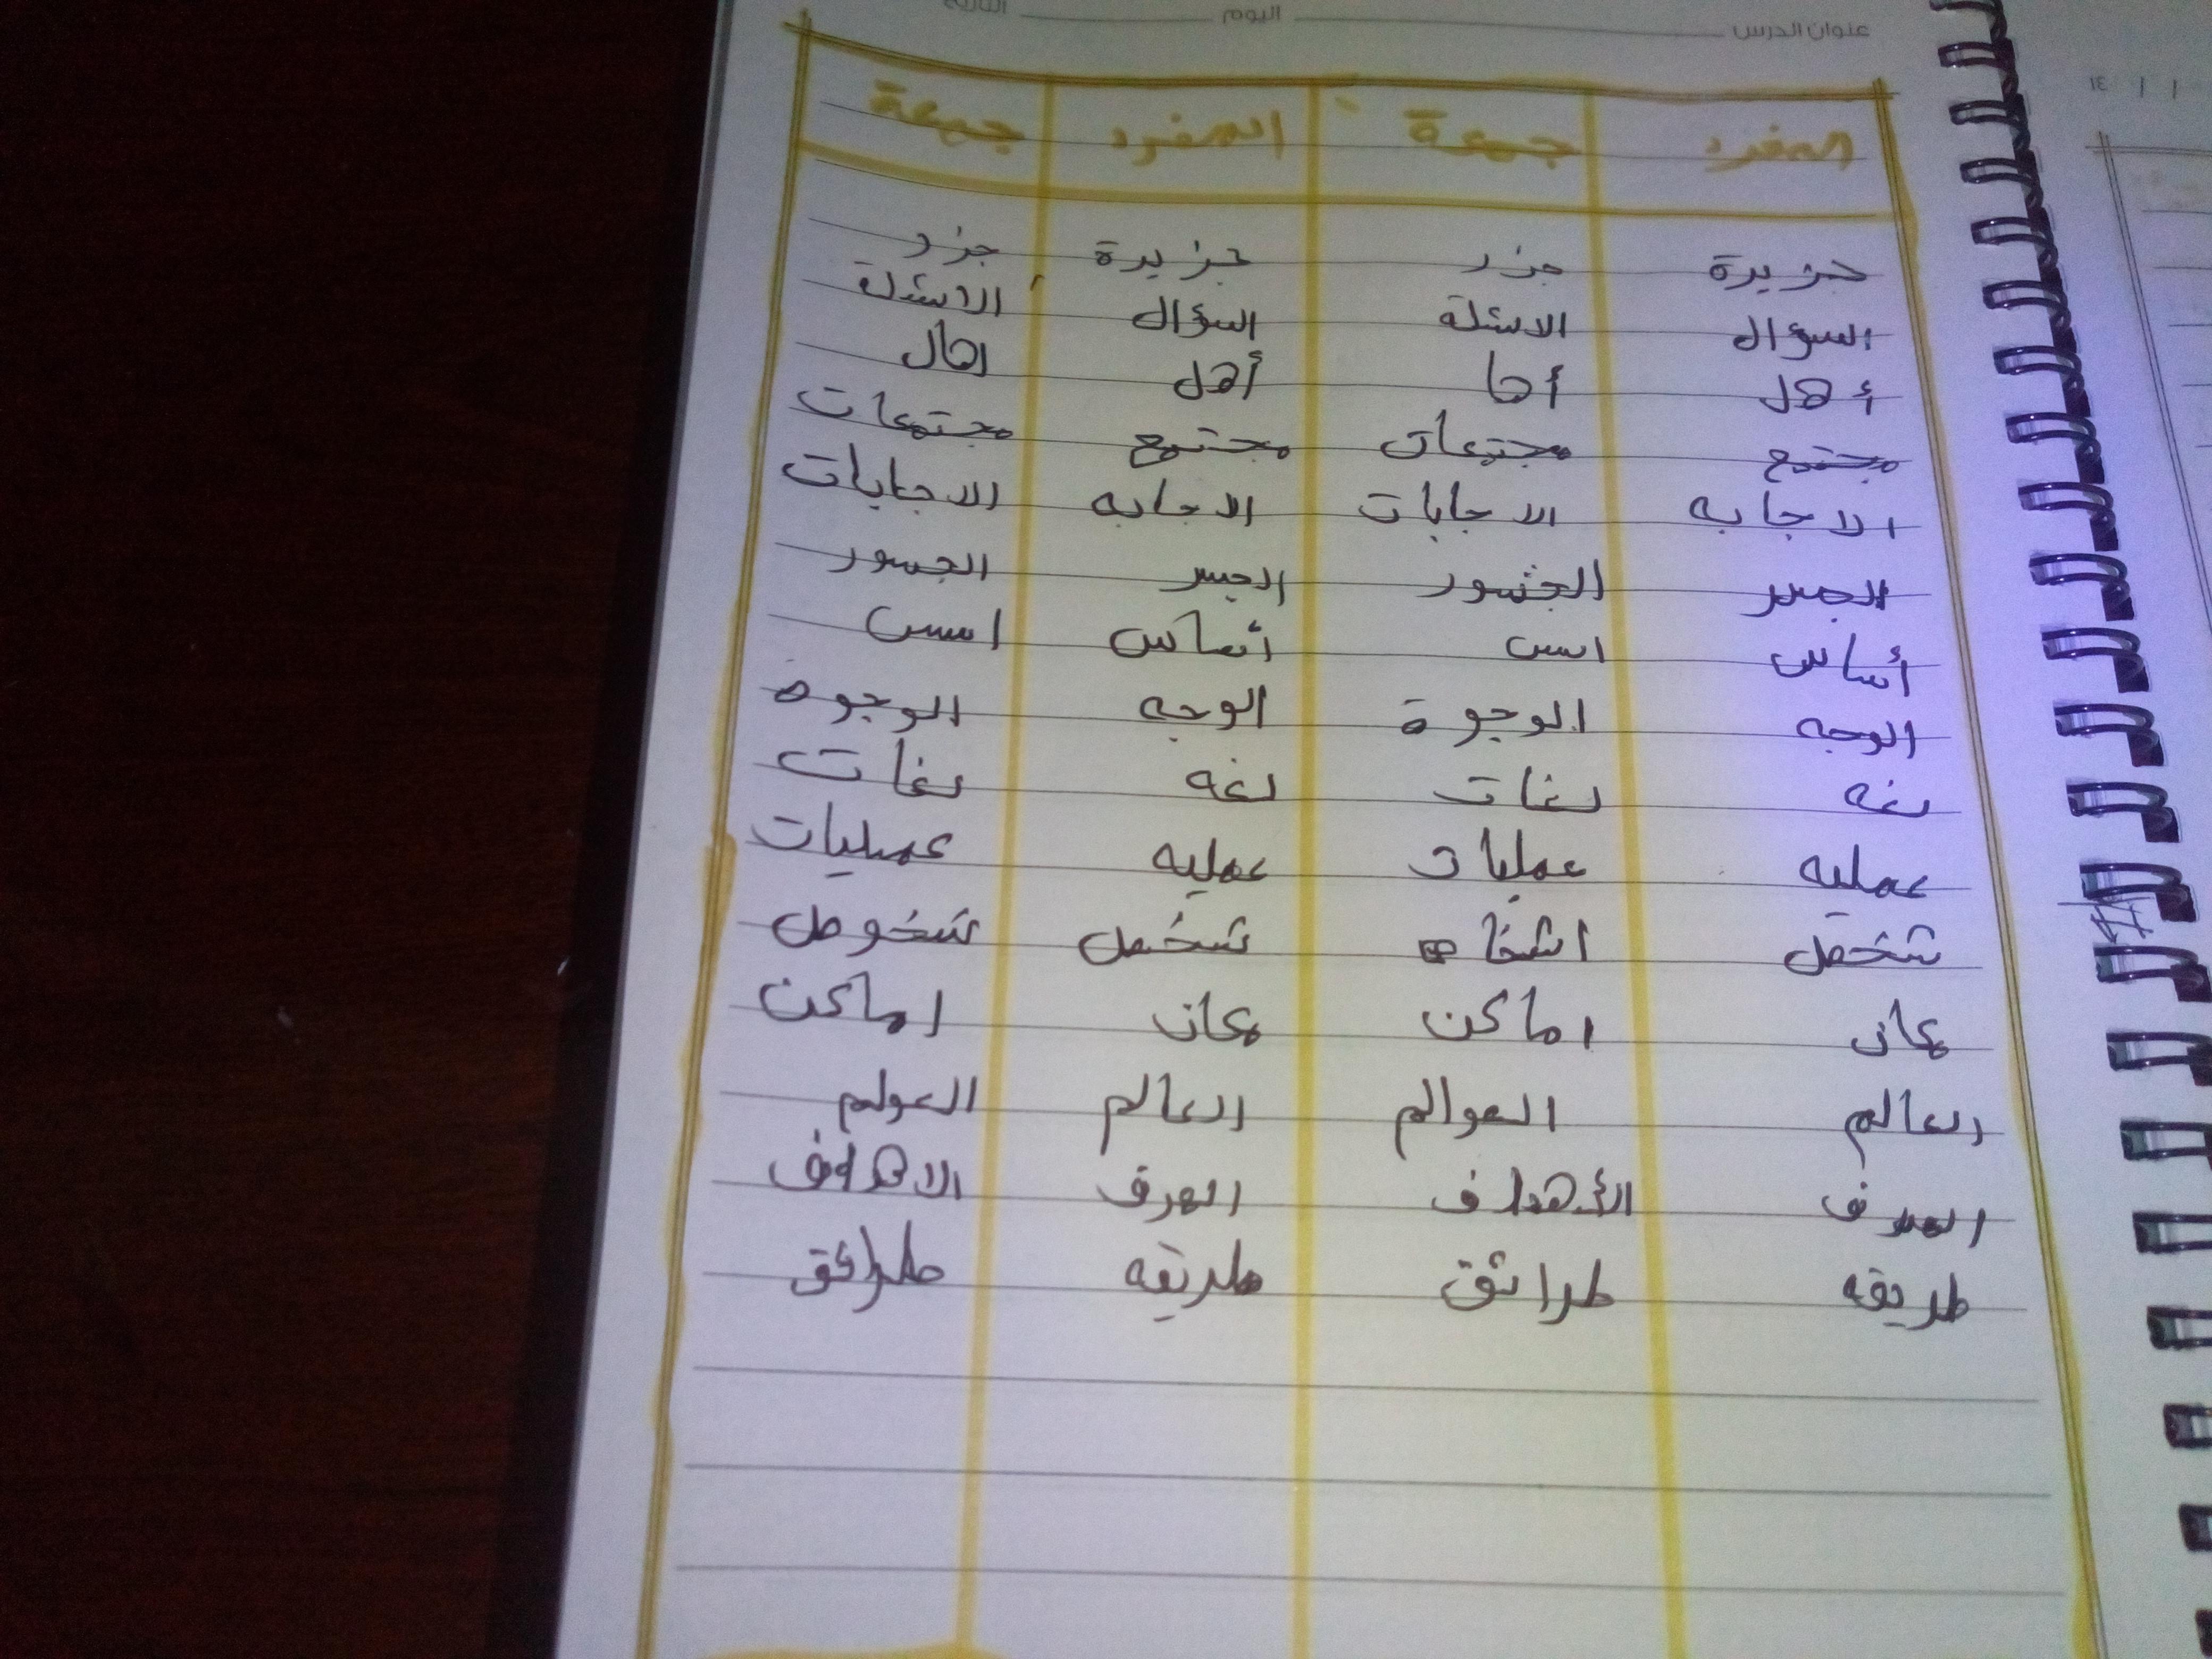 عنوان الدرس اليوم التاريخ
المفرد جمعة المفرد جمعة
جزيرة جزر جزيرة جزر
السؤال الاسئلة السؤال الاسئلة
أهل أها أهل اهال
مجتمع مجتمعات مجتمع مجتمعات
الاجابه الاجابات الاجابه الاجابات
الجسر الجسور الجسر الجسور
أساس اسس أساس اسس
الوجه الوجوة الوجه الوجوه
لغه لغات لغه لغات
عمليه عمليات عمليه عمليات
شخص اشخاص شخص شخوص
مكان اماكن مكان اماكن
العالم العوالم العالم العولم
الهدف الأهداف الهدف الاهداف
طريقه طرائق طريقه طرائق